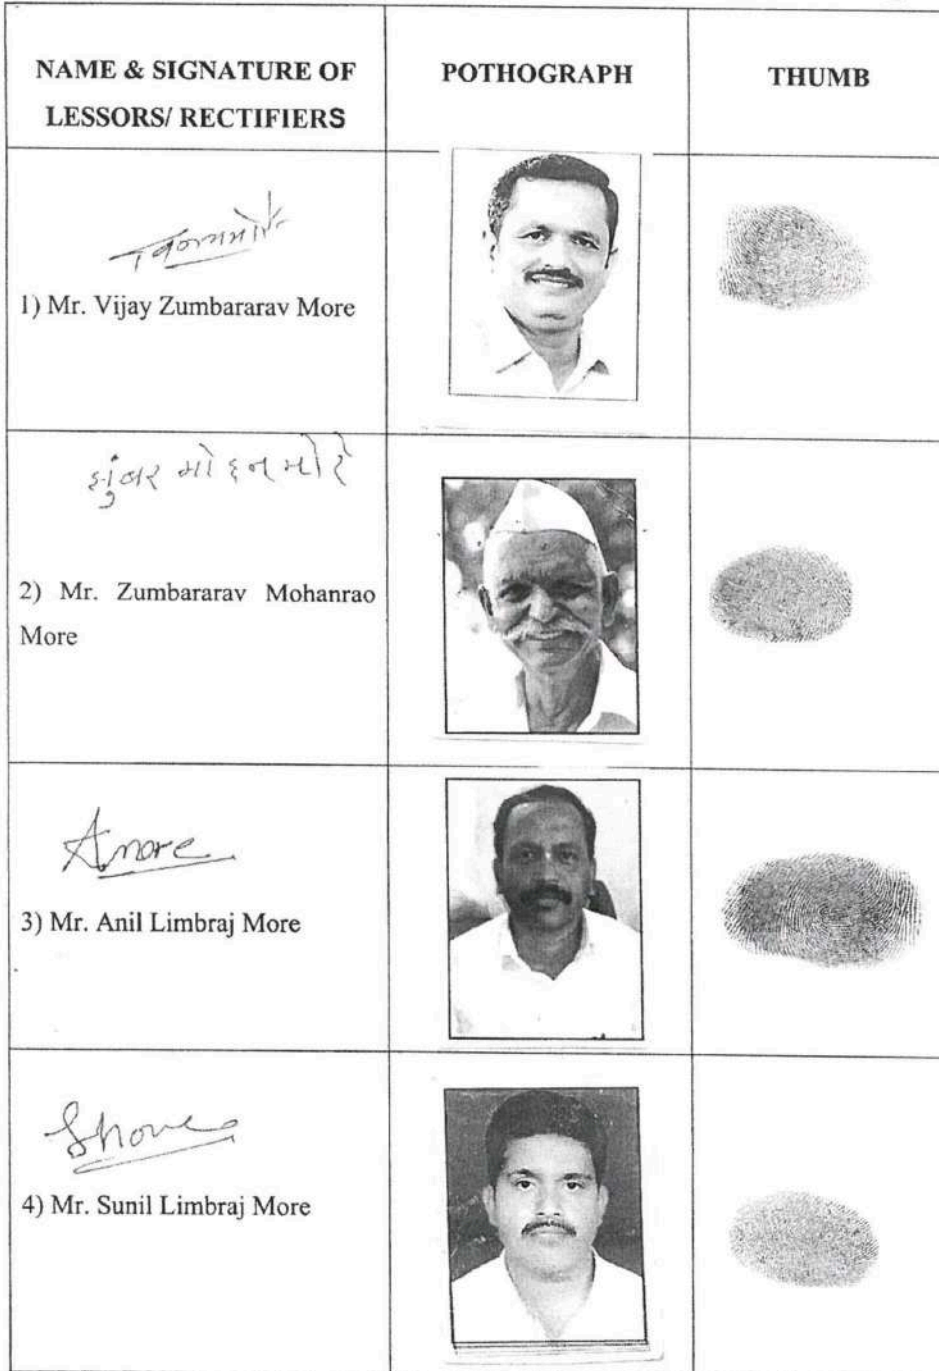 NAME & SIGNATURE OF
LESSORS/ RECTIFIERS
POTHOGRAPH
THUMB
1) Mr. Vijay Zumbararav More
झुंबर मोहन मोरे
2) Mr. Zumbararav Mohanrao
More
Amore
3) Mr. Anil Limbraj More
4) Mr. Sunil Limbraj More